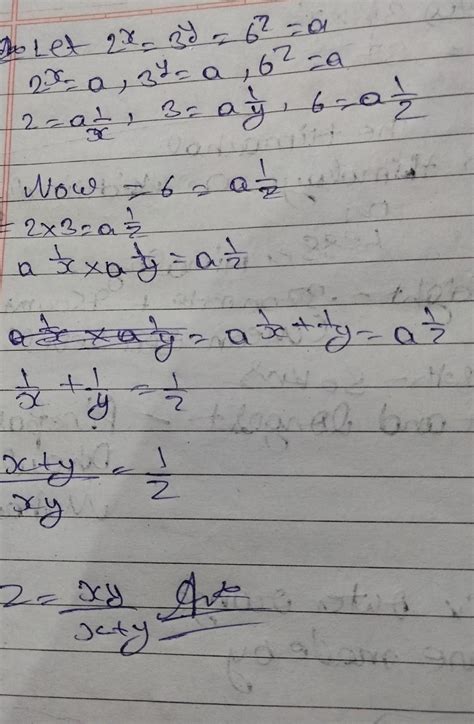 Let 2^x = 3^y = 6^z = a
2^x = a, 3^y = a, 6^z = a
2 = a^1/x, 3 = a^1/y, 6 = a^1/z
Now = 6 = a^1/z
= 2×3 = a^1/z
a^1/x × a^1/y = a^1/z
= a^1/x + 1/y = a^1/z
1/x + 1/y = 1/z
x+y/xy = 1/z
z = xy/x+y Ans